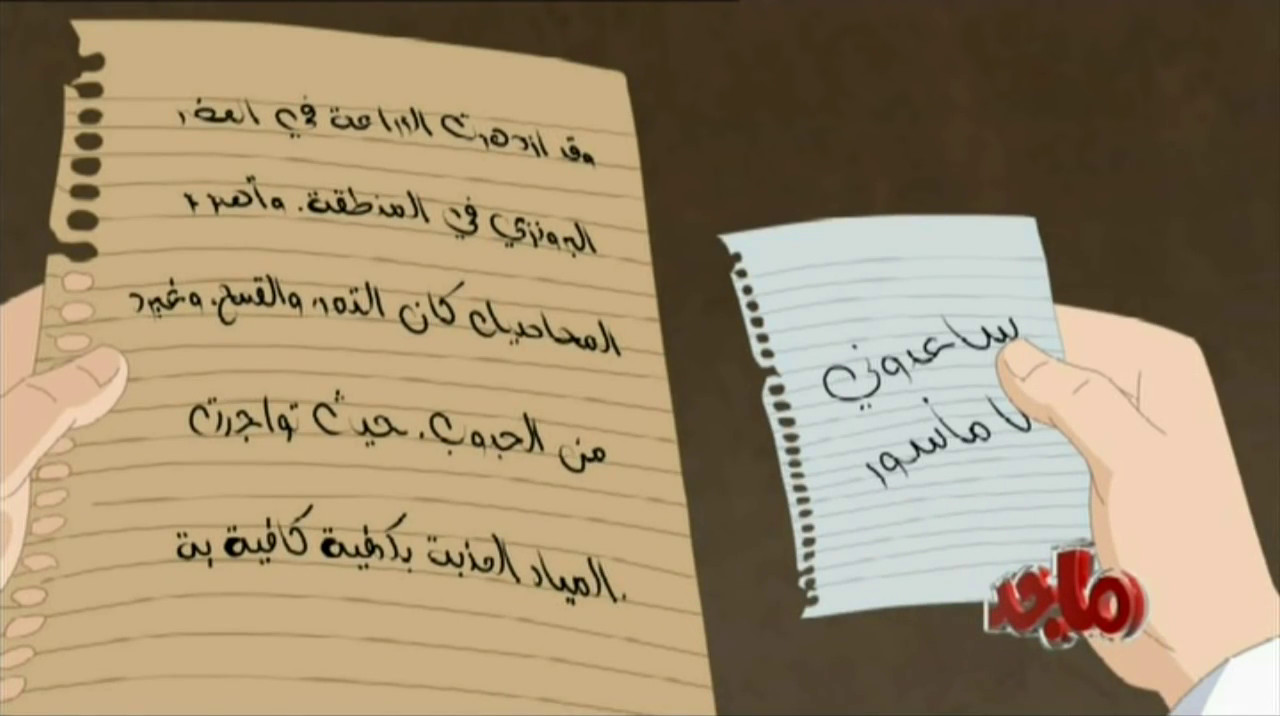 وقد ازدهرت الزراعة في العصر
البرونزي في المنطقة. وأهم
المحاصيل كان التمور والقمح، وغيره
من الحبوب. حيث تواجدت
المياه العذبة بكمية كافية
ساعدوني
أنا مأسور
ماجد